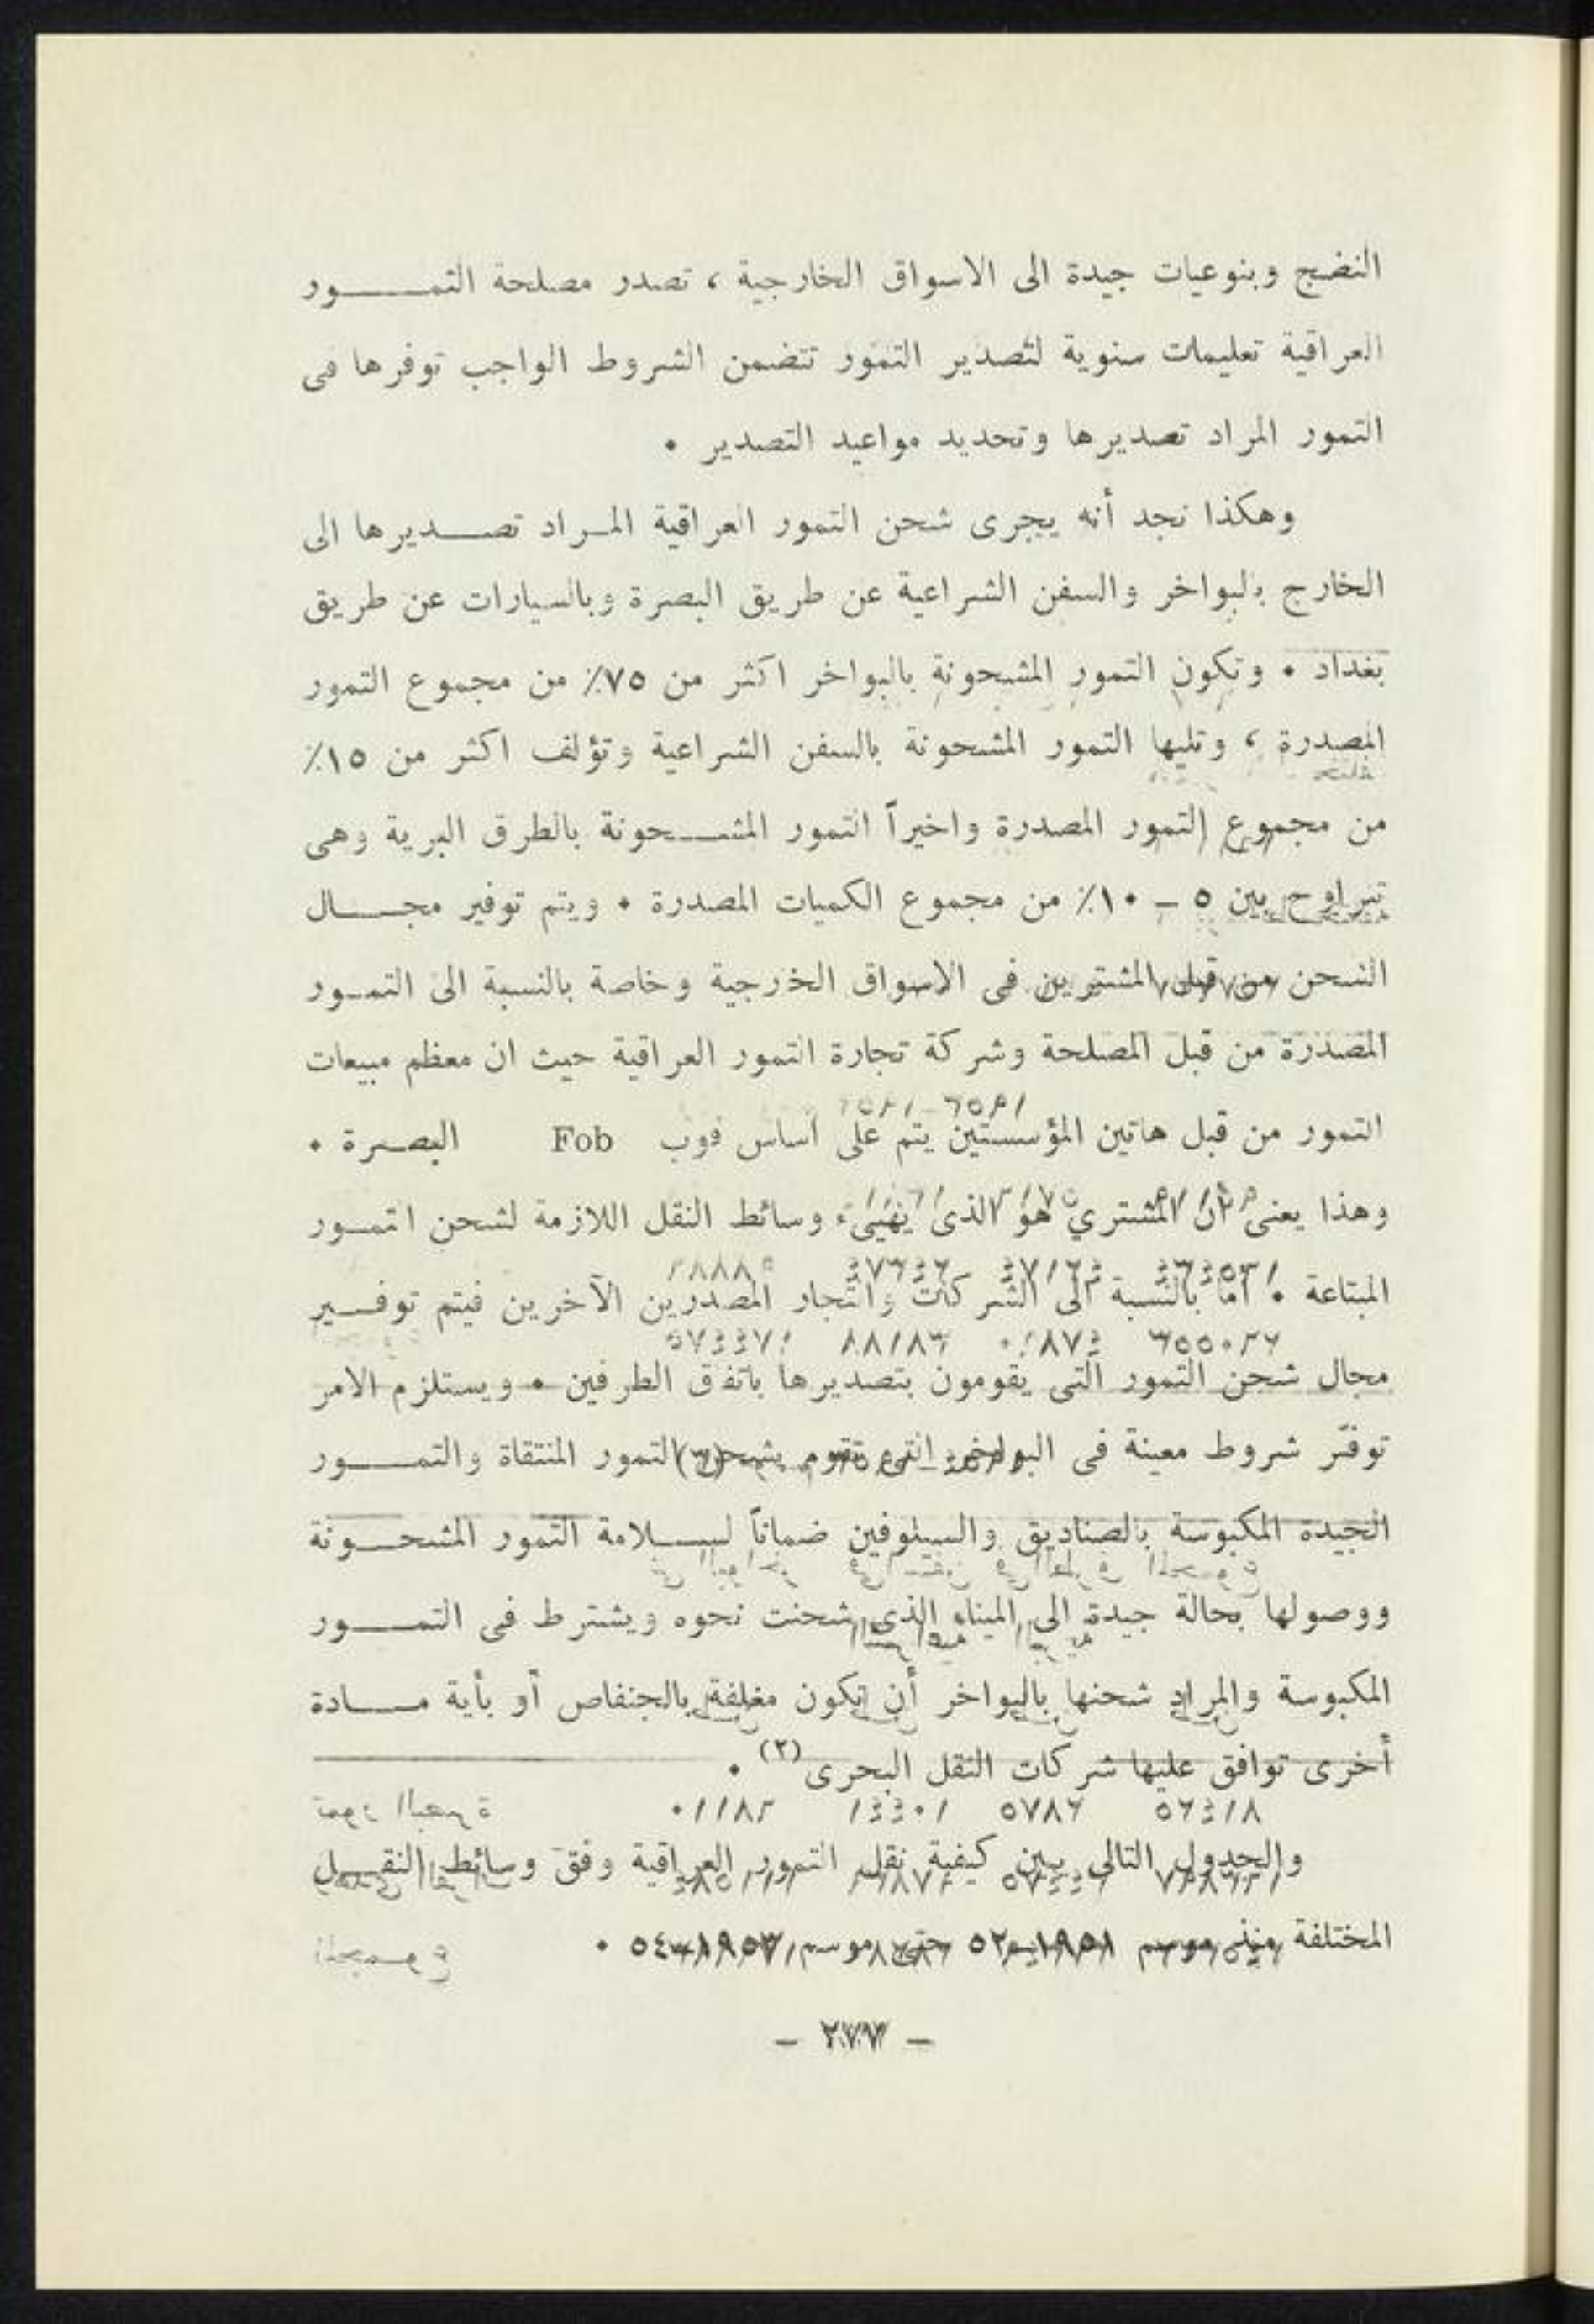 النضج وبنوعيات جيدة الى الاسواق الخارجية ، تصدر مصلحة التمــور
العراقية تعليمات سنوية لتصدير التمور تتضمن الشروط الواجب توفرها فى
التمور المراد تصديرها وتحديد مواعيد التصدير ٠
وهكذا نجد أنه يجرى شحن التمور العراقية المـراد تصــديرها الى
الخارج بالبواخر والسفن الشراعية عن طريق البصرة وبالسيارات عن طريق
بغداد ٠ وتكون التمور المشحونة بالبواخر اكثر من ٧٥٪ من مجموع التمور
المصدرة ، وتليها التمور المشحونة بالسفن الشراعية وتؤلف اكثر من ١٥٪
من مجموع التمور المصدرة واخيراً التمور المشــحونة بالطرق البرية وهى
تتراوح بين ٥ – ١٠٪ من مجموع الكميات المصدرة ٠ ويتم توفير مجــال
الشحن من قبل المشترين فى الاسواق الخرجية وخاصة بالنسبة الى التمـور
المصدرة من قبل المصلحة وشركة تجارة التمور العراقية حيث ان معظم مبيعات
التمور من قبل هاتين المؤسستين يتم على اساس فوب Fob البصـرة ٠
وهذا يعنى ان المشتري هو الذى يهيىء وسائط النقل اللازمة لشحن التمـور
المبتاعة ٠ اما بالنسبة الى الشركات والتجار المصدرين الآخرين فيتم توفـير
مجال شحن التمور التى يقومون بتصديرها باتفق الطرفين ٠ ويستلزم الامر
توفّر شروط معينة فى البواخر التى تقوم بشحن التمور المنتقاة والتمــور
الجيدة المكبوسة بالصناديق والسيلوفين ضماناً لســلامة التمور المشحــونة
ووصولها بحالة جيدة الى الميناء الذى شحنت نحوه ويشترط فى التمــور
المكبوسة والمراد شحنها بالبواخر أن تكون مغلفة بالجنفاص أو بأية مــادة
أخرى توافق عليها شركات النقل البحرى(٢) ٠
والجدول التالى يبين كيفية نقل التمور العراقية وفق وسائط النقــل
المختلفة منذ موسم ١٩٥١ــ٥٢ حتى موسم ١٩٥٣ــ٥٤ ٠
– ٢٧٧ –